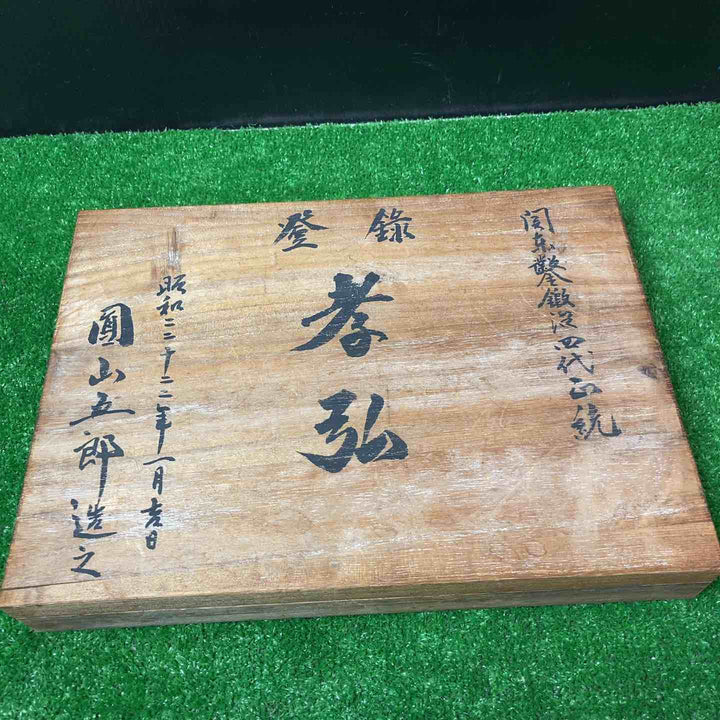 関東鑿鍛造四代正統
登録
孝弘
昭和二十二年一月吉日
圓山五郎造之